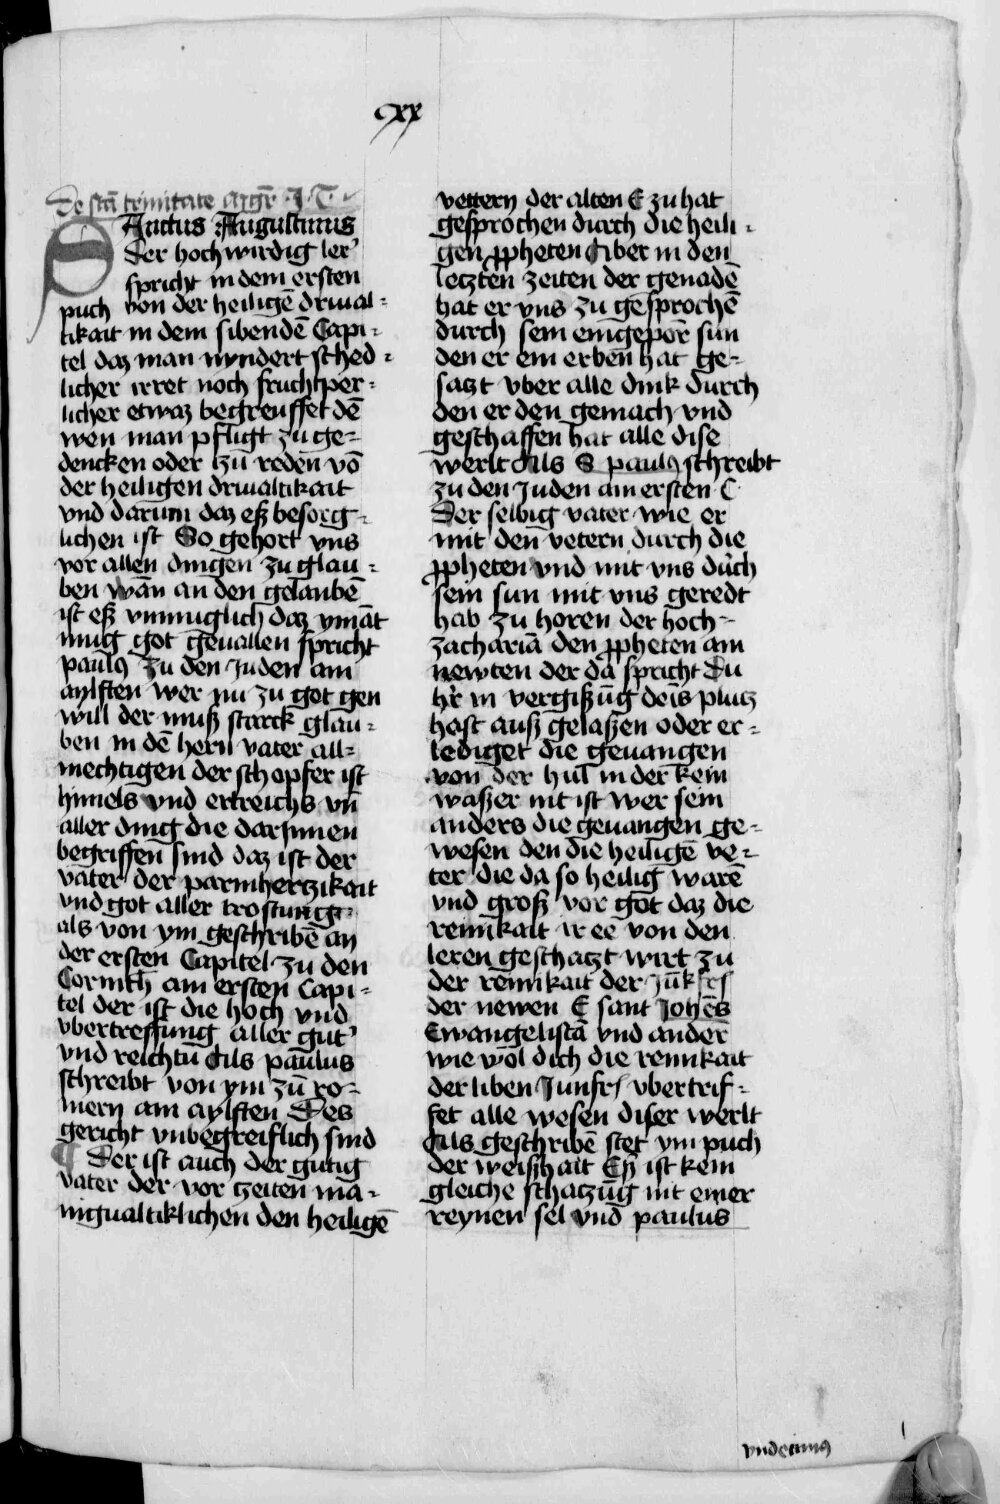 cxx
De stā trinitate
Sanctus Augustinus
der hochwirdig ler'
spricht in dem ersten
puch von der heiligē driual-
tikait in dem sibendē Capi-
tel daz man nyndert sched-
licher irret noch fruchtper-
licher etwaz begreuffet dē
wen man pfligt zu ge-
dencken oder zu reden vō
der heiligen driualtikait
vnd darum daz eß besorg-
lichen ist So gehort vns
vor allen dingen zu glau-
ben wān an den gelaubē
ist eß vnmuglich daz ymāt
mug got geuallen spricht
paulꝰ zu den Juden am
aylften wer nu zu got gen
will der muß starck glau-
ben in dē hern vater all-
mechtigen der schopfer ist
himels vnd ertreichs vn̄
aller ding die darinnen
begriffen sind daz ist der
vater der parmhertzikait
vnd got aller trostungr
als von ym geschribē an
der ersten Capitel zu den
Corinth̄ am ersten Capi-
tel der ist die hoch vnd
vbertreffung aller gut'
vnd reichtū Als paulus
schreibt von ym zū ro-
mern am aylften Des
gericht vnbegreiflich sind
¶ Der ist auch der gutig
vater der vor zeiten ma-
nigualtiklichen den heiligē
vettern der alten E zu hat
gesprochen durch die heili-
gen ꝓpheten Aber in den
letzten zeiten der genadē
hat er vns zu gesprochē
durch sein eingepor̄ sun
den er ein erben hat ge-
satzt vber alle dink durch
den er den gemach vnd
geschaffen hat alle dise
werlt Als S paulꝰ schreibt
zu den Juden am ersten C
Der selbig vater wie er
mit den vetern durch die
ꝓpheten vnd mit vns durch
sein sun mit vns geredt
hab zu horen der hoch-
zachariā den ꝓpheten am
newten der da spricht Du
h'r in vergißūg deīs plutz
hast auß gelaßen oder er-
lediget die geuangen
von der hul in der kein
waßer nit ist wer sein
anders die geuangen ge-
wesen den die heiligē ve-
ter die da so heilig warē
vnd groß vor got daz die
reinikait ir ee von den
leren geschatzt wirt zu
der reinikait der Jūkfrſ
der newen E sant Joh̄es
Ewangelistā vnd ander̄
wie wol dich die reinikait
der liben Junfrſ vbertrif-
fet alle wesen diser werlt
Als geschribē stet ym puch
der weißhait Eß ist kein
gleiche schatzūg nit einer
reynen sel vnd paulus
vndecimꝰ